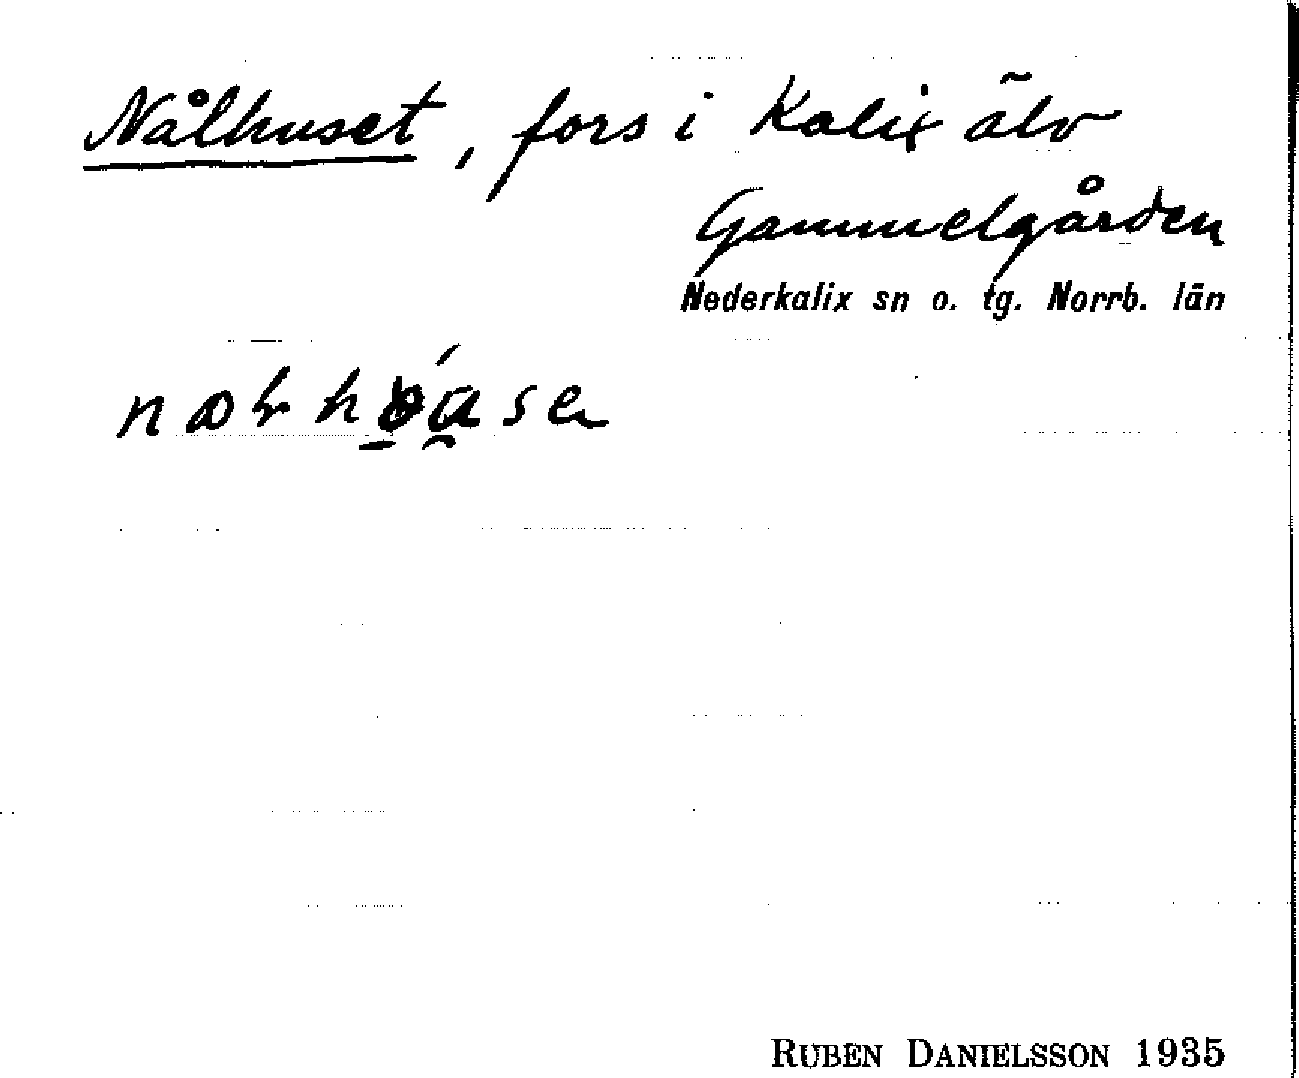 Nålhuset, fors i Kalix älv
Gammelgården
Nederkalix sn o. tg. Norrb. län
RUBEN DANIELSSON 1935